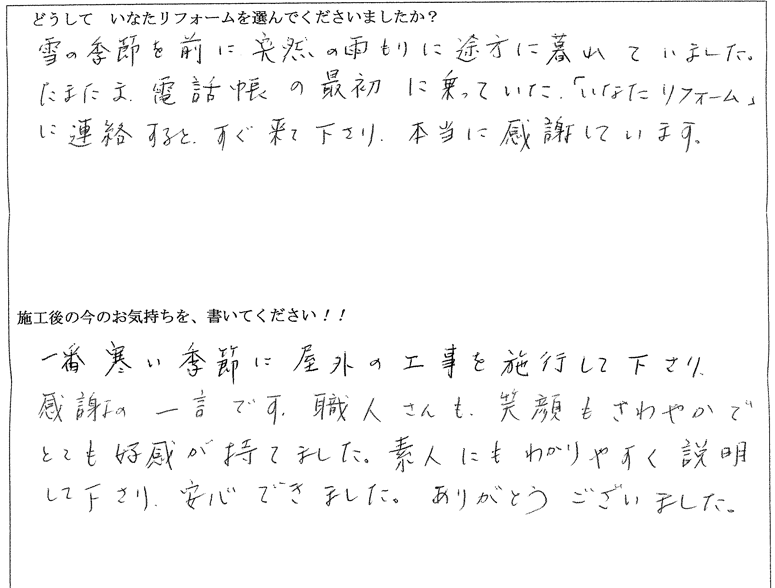 どうして　いなたリフォームを選んでくださいましたか？
雪の季節を前に突然の雨もりに途方に暮れていました。
たまたま、電話帳の最初に乗っていた、「いなたリフォーム」
に連絡すると、すぐ来て下さり、本当に感謝しています。
施工後の今のお気持ちを、書いてください！！
一番寒い季節に屋外の工事を施行して下さり、
感謝の一言です。職人さんも、笑顔もさわやかで
とても好感が持てました。素人にもわかりやすく説明
して下さり、安心できました。ありがとうございました。